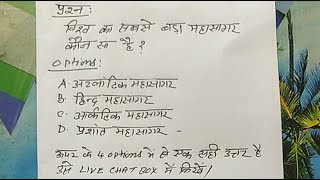 प्रश्न:
विश्व का सबसे बड़ा महासागर
कौन सा है?
options:
A. अटलांटिक महासागर
B. हिन्द महासागर
C. आर्कटिक महासागर
D. प्रशांत महासागर
ऊपर के 4 options में से एक सही उत्तर है
उसे LIVE CHAT BOX में लिखें।